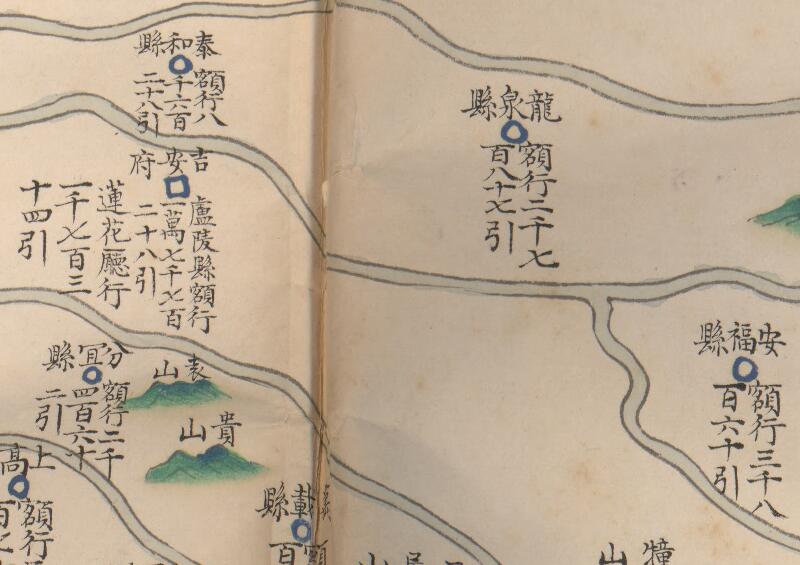 泰和縣
額行八
千六百
二十八引
龍泉縣
額行二千七
百八十七引
吉安府
盧陵縣額行
一萬七千七百
二十八引
蓮花廳行
一千七百三
十四引
安福縣
額行三千八
百六十引
分宜縣
額行二千
四百六十
二引
袁山
貴山
上高
額行
百
載縣
額
百
山
山